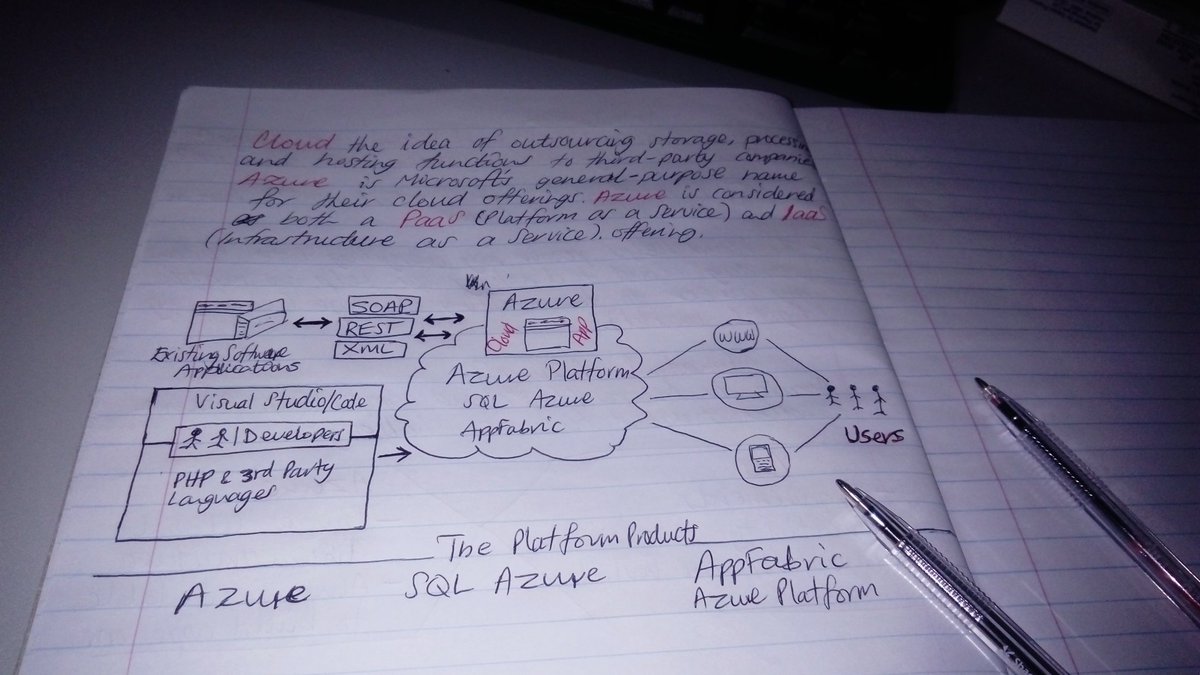 Cloud the idea of outsourcing storage,
and hosting functions to third-party
Azure is Microsoft's general-purpose name
for their cloud offerings. Azure is considered
both a PaaS (Platform as a Service) and IaaS
(Infrastructure as a Service). offering.
Azure
Cloud
App
SOAP
REST
XML
Existing Software
Applications
Azure Platform
SQL Azure
AppFabric
WWW
Users
Visual Studio/Code
Developers
PHP & 3rd Party
Languages
The Platform Products
Azure
SQL Azure
AppFabric
Azure Platform